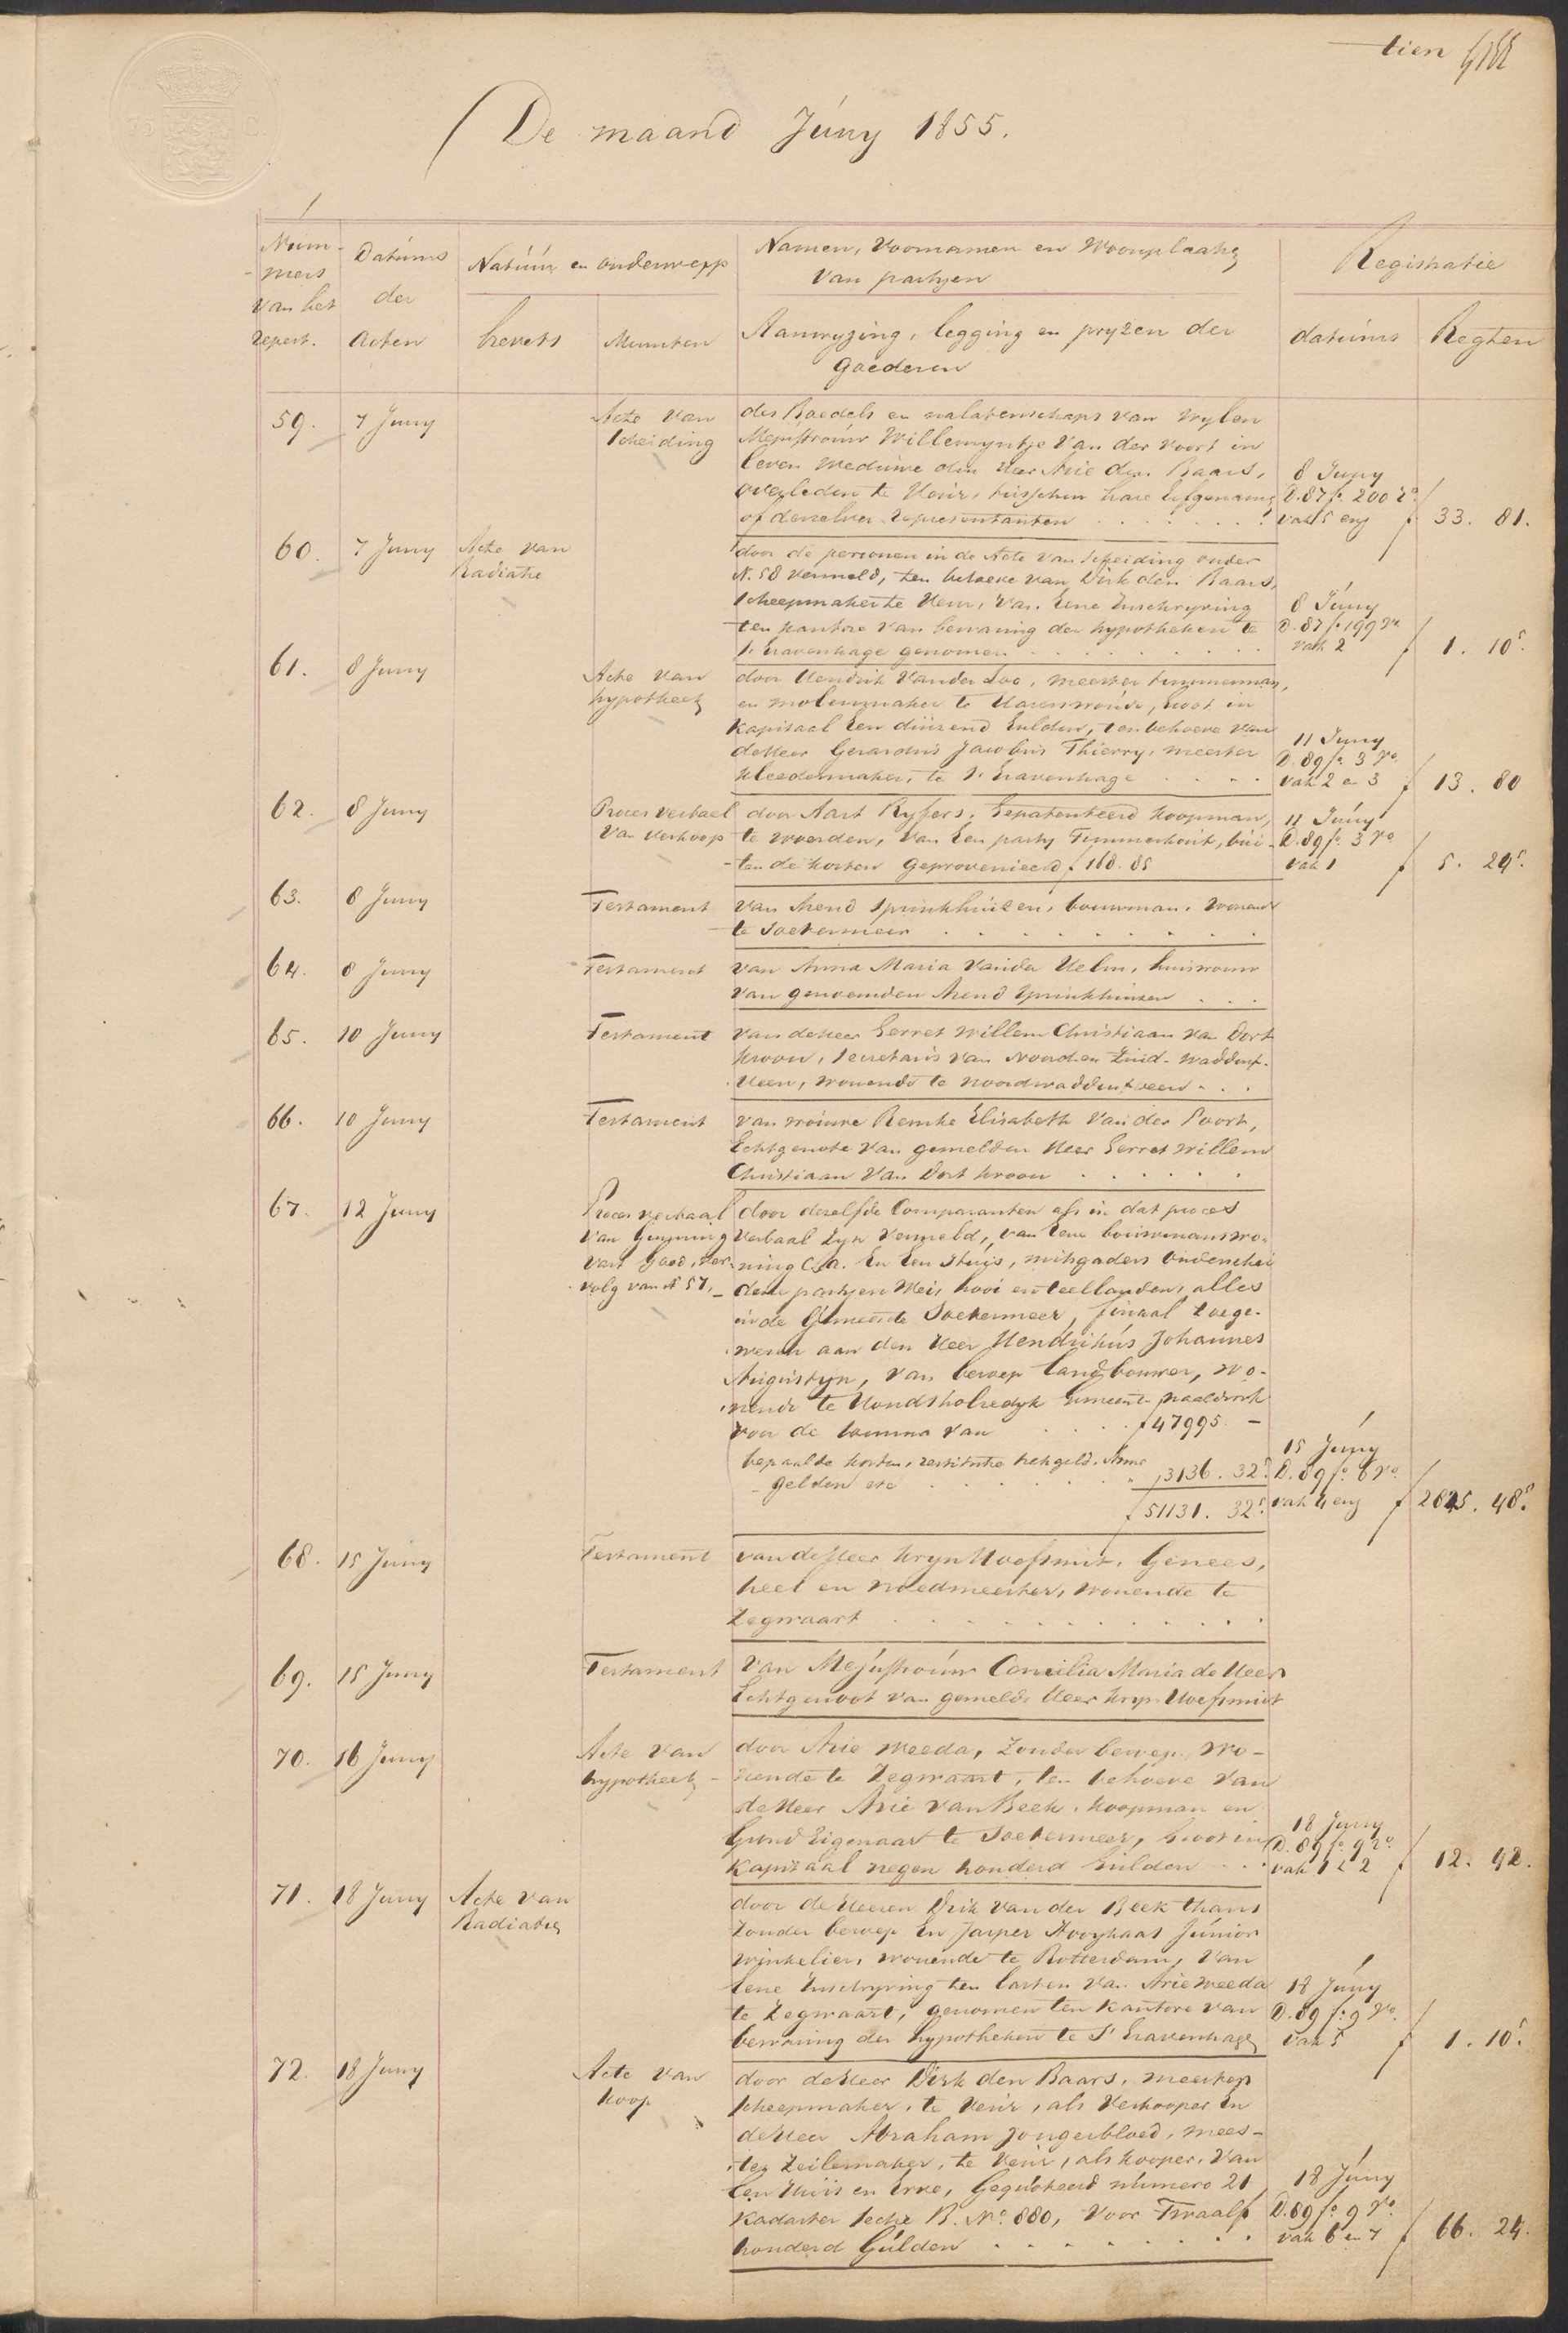 tien
De maand Juny 1855.
Num-
-mers
van het
repert.
Datums
der
Acten
Natuur en onderwerp
brevets
Minuten
Namen, Voornamen en Woonplaats
van partyen
Aanwyzing, legging en pryzen der
goederen
Registratie
datums
Regten
59. 7 Juny Acte van scheiding
des Boedels en nalatenschaps van wylen
Mejuffrouw Willemyntje van der Voort in
leven Weduwe den Heer Arie den Baars,
overleden te Veur, tusschen hare Erfgenamen
of derzelver representanten
8 Juny
D. 87 fo. 200 ro.
vak 5 env f 33. 81.
60. 7 Juny Acte van Radiatie
door de personen in de Acte van scheiding onder
N. 58 vermeld, ten behoeve van Dirk den Baars,
scheepmaker te Veur, van Eene Inschryving
ten kantore van bewaring der hypotheken te
s'Gravenhage genomen
8 Juny
D. 87 fo. 199 vo.
vak 2 f 1. 10 5.
61. 8 Juny Acte van hypotheek
door Hendrik van der Loo, meester timmerman,
en molenmaker te Hazerswoude, groot in
Kapitaal Een duizend Gulden, ten behoeve van
de Heer Gerardus Jacobus Thierry, meester
kleedermaker, te s'Gravenhage
11 Juny
D. 89 fo. 3 vo.
vak 2 en 3 f 13. 80
62. 8 Juny Proces verbaal van verkoop
door Aart Kyfers, Gepatenteerd koopman,
te Woerden, van Een party Timmerhout, bui-
-ten de kosten geprovenieerd f 168. 85
11 Juny
D. 89 fo. 3 vo.
vak 1 f 5. 24 5.
63. 8 Juny Testament
van Arend Sprinkhuizen, bouwman, wonende
te Soetermeer
64. 8 Juny Testament
van Anna Maria van der Helm, huisvrouw
van genoemden Arend Sprinkhuizen
65. 10 Juny Testament
van de Heer Gerret Willem Christiaan van Dort
Kroon, secretaris van Noord en Zuid-Waddinx-
veen, wonende te Noordwaddinxveen
66. 10 Juny Testament
van vrouwe Remke Elisabeth van der Poort,
Echtgenote van gemelden Heer Gerret Willem
Christiaan van Dort Kroon
67. 12 Juny
Proces verbaal
van Gunning
van Goed, ver-
volg van N 57.
door dezelfde Comparanten als in dat proces
verbaal zyn vermeld, van Eene bouwmanswo-
ning C.A. En Een Huys, mitsgaders onderschei
dene partyen Wei, hooi en teellanden, alles
in de Gemeente Soetermeer, finaal toege-
wezen aan den Heer Hendrikus Johannes
Augustyn, van beroep landbouwer, wo-
nende te Hondsholredyk Gemeente Naaldwyk
voor de somma van f 47995. -
bepaalde kosten, restitutie hekgeld, Arme
gelden etc " 3136. 32 5.
f 51131. 32 5.
15 Juny
D. 89 fo. 6 vo.
vak 4 env f 2645. 48 5.
68. 15 Juny Testament
van de Heer Kryn Hoefsmit, Genees,
heel en vroedmeester, wonende te
Zegwaart
69. 15 Juny Testament
van Mejuffrouw Cornelia Maria de Heer
Echtgenoot van gemelde Heer Kryn Hoefsmit
70. 16 Juny Acte van hypotheek
door Arie Weeda, zonder beroep, wo-
nende te Zegwaart, ten behoeve van
de Heer Arie van Beek, koopman en
Grond Eigenaar te Soetermeer, Groot in
Kapitaal negen honderd Gulden
18 Juny
D. 89 fo. 9 ro.
vak 1 & 2 f 12. 42.
71. 18 Juny Acte van Radiatie
door de Heeren Dirk van der Beek thans
zonder beroep En Jasper Hooykaas Junior
winkelier, wonende te Rotterdam, van
Eene Inschryving ten lasten van Arie Weeda
te Zegwaart, genomen ten kantore van
bewaring der hypotheken te S'Gravenhage
18 Juny
D. 89 fo. 9 vo.
vak 5 f 1. 10 5.
72. 18 Juny Acte van koop
door de Heer Dirk den Baars, meester
scheepmaker, te Veur, als Verkooper En
de Heer Abraham Jongerbloed, mees-
-ter Zeilemaker, te Veur, als kooper, van
Een Huis en Erve, Gequoteerd numero 21
Kadaster sectie B. No. 880, voor Twaalf
honderd Gulden
18 Juny
D. 89 fo. 9 vo.
vak 6 en 7 f 66. 24.